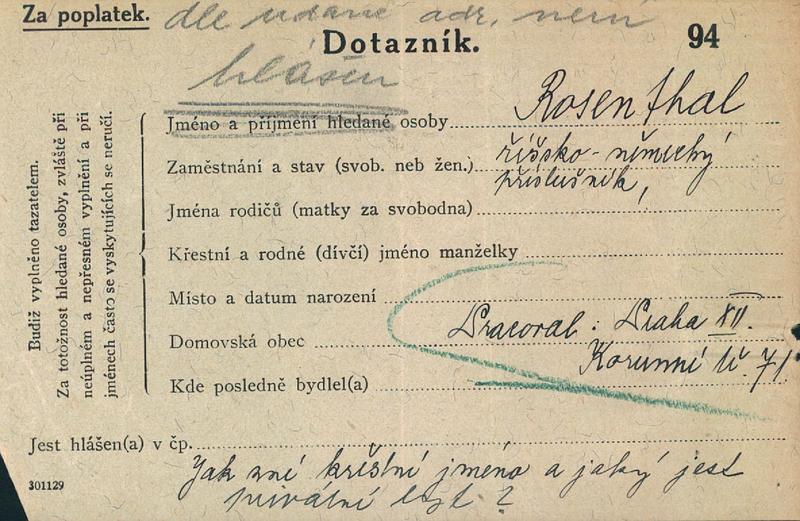 Za poplatek. dle udané adr. není
Dotazník. 94
hlášen
Budiž vyplněno tazatelem.
Za totožnost hledané osoby, zvláště při
neúplném a nepřesném vyplnění a při
jménech často se vyskytujících se neručí.
Jméno a příjmení hledané osoby Rosenthal
Zaměstnání a stav (svob. neb žen.) říšsko-německý
příslušník,
Jména rodičů (matky za svobodna)
Křestní a rodné (dívčí) jméno manželky
Místo a datum narození
Domovská obec Pracoval: Praha XII.
Korunní tř. 71
Kde posledně bydlel(a)
Jest hlášen(a) v čp.
Jak zní křestní jméno a jaký jest
privátní byt?
301129